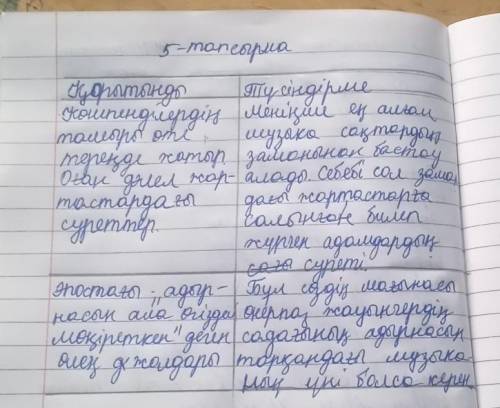 5-тапсырма
Қорытынды
Көшпенділердің
тамыры өте
тереңде жатыр
Оған дәлел жар-
тастардағы
суреттер.
Түсіндірме
Меніңше ең алғаш
музыка сақтардың
заманынан бастау
алады. Себебі сол заман
дағы жартастарға
салынған билеп
жүрген адамдардың
суреті.
Эпостағы "адыр-
насын ала өгіздей
мөңіреткен" деген
өлең жолдары
Бұл сөздің мағынасы
жауынгердің
садағының адырнасын
тартқандағы музыка-
ның үні болса керек